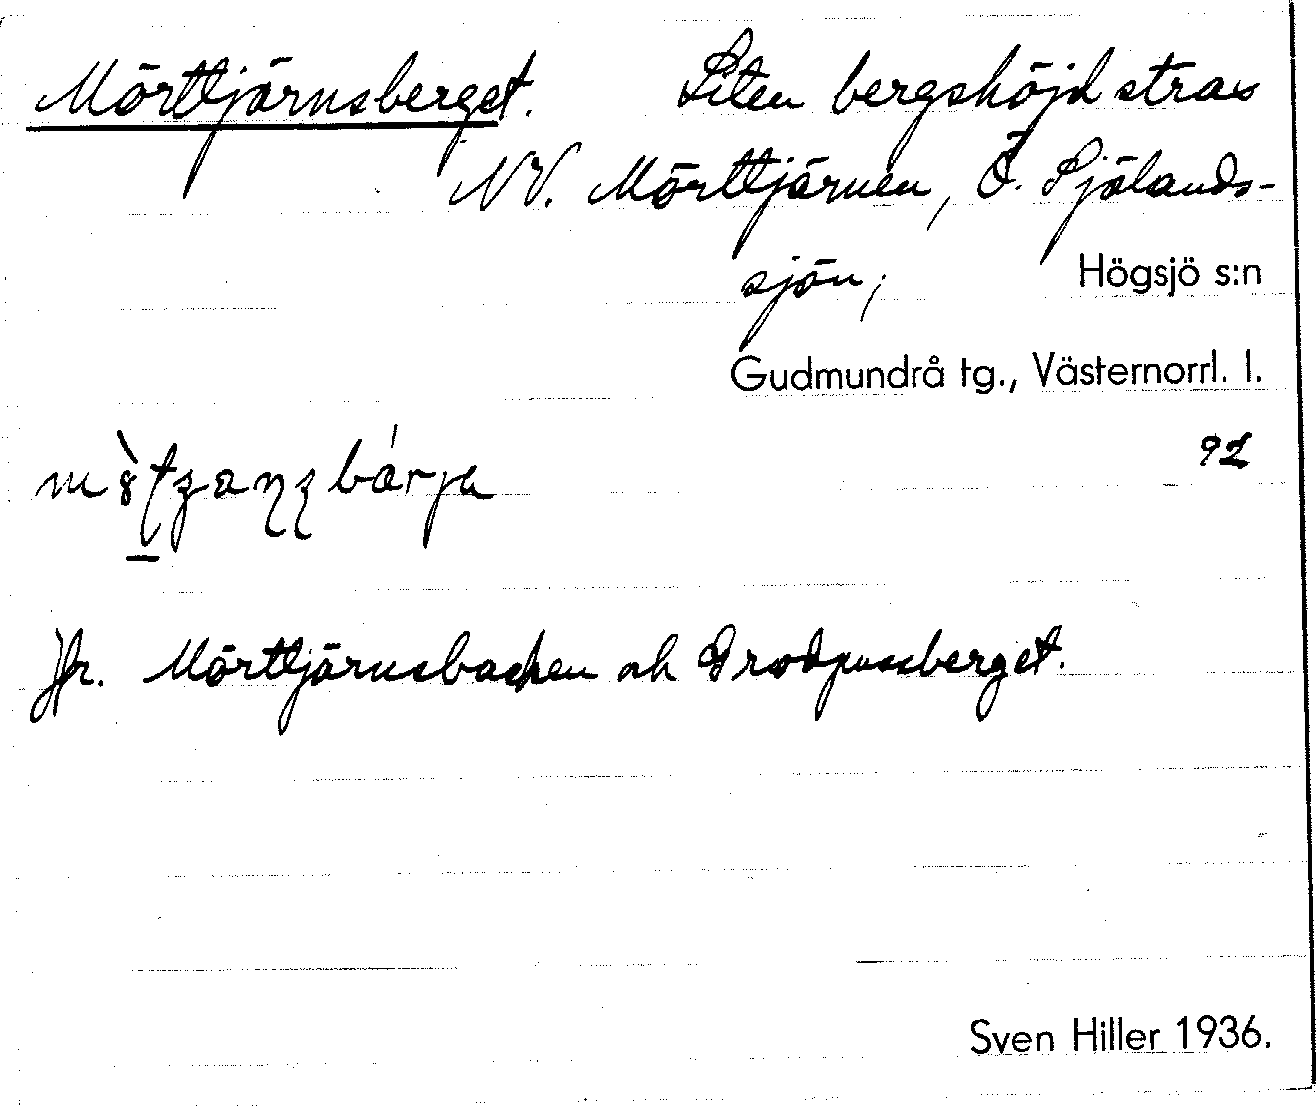 Mörttjärnsberget. Liten bergshöjd strax
NV. Mörttjärnen, Ö. Själands-
sjön;
Högsjö s:n
Gudmundrå tg., Västernorrl. l.
92
Jfr. Mörttjärnsbacken och Grodpussberget.
Sven Hiller 1936.